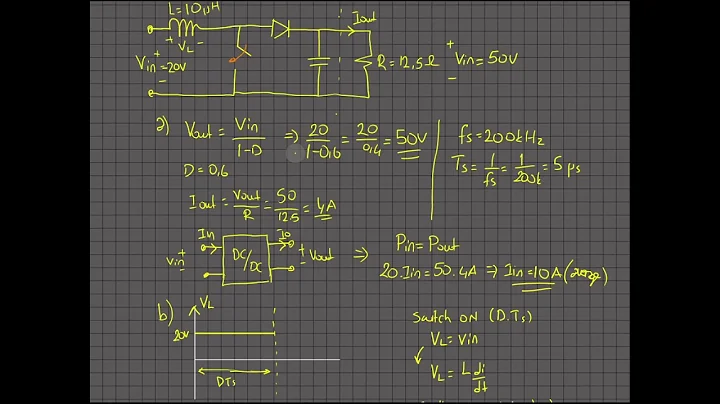 L=10μH
+ VL -
Iout
Vin=20V
+
-
R=12,5Ω
+
Vin=50V
-
a) Vout = Vin/1-D ⇒ 20/1-0,6 = 20/0,4 = 50V
D=0,6
fs=200kHz
Ts = 1/fs = 1/200k = 5 μs
Iout = Vout/R = 50/12.5 = 4A
Iin
Io
Vin
+
-
DC/DC
+
-
Vout
⇒ Pin=Pout
20.Iin=50.4A ⇒ Iin=10A
b) VL
20V
DTs
Switch ON (D.Ts)
VL=Vin
VL = L di/dt